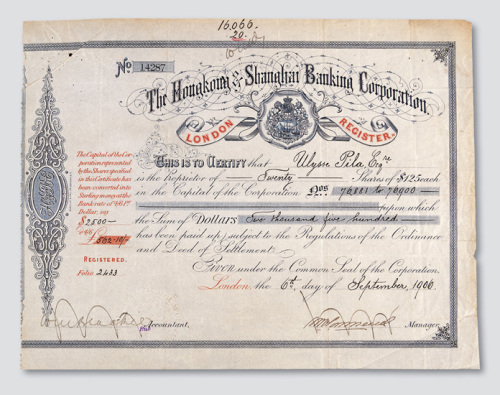 16,060.
20.
No 14287
The Hongkong & Shanghai Banking Corporation.
LONDON REGISTER.
The Capital of the Cor-
poration represented
by the Shares specified
in this Certificate has
been converted into
Sterling money at the
Bank rate of
Dollar, say
$2500=
REGISTERED.
Folio 2433
THIS IS TO CERTIFY that Ulysse Pila Esqre
is the Proprietor of Twenty Shares of $125 each
in the Capital of the Corporation Nos 76881 to 76900
upon which
the Sum of Dollars Two thousand five hundred
has been paid up, subject to the Regulations of the Ordinance
and Deed of Settlement.
Given under the Common Seal of the Corporation.
London the 6th day of September, 1906.
Accountant.
Manager.